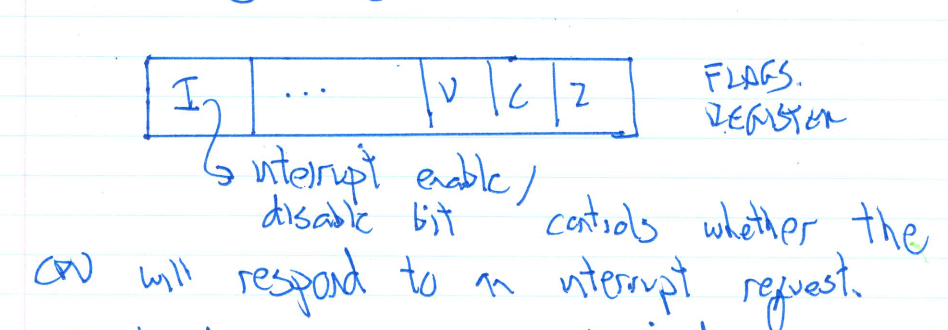 I ... V C Z FLAGS.
REGISTER
interrupt enable/
disable bit controls whether the
CPU will respond to an interrupt request.